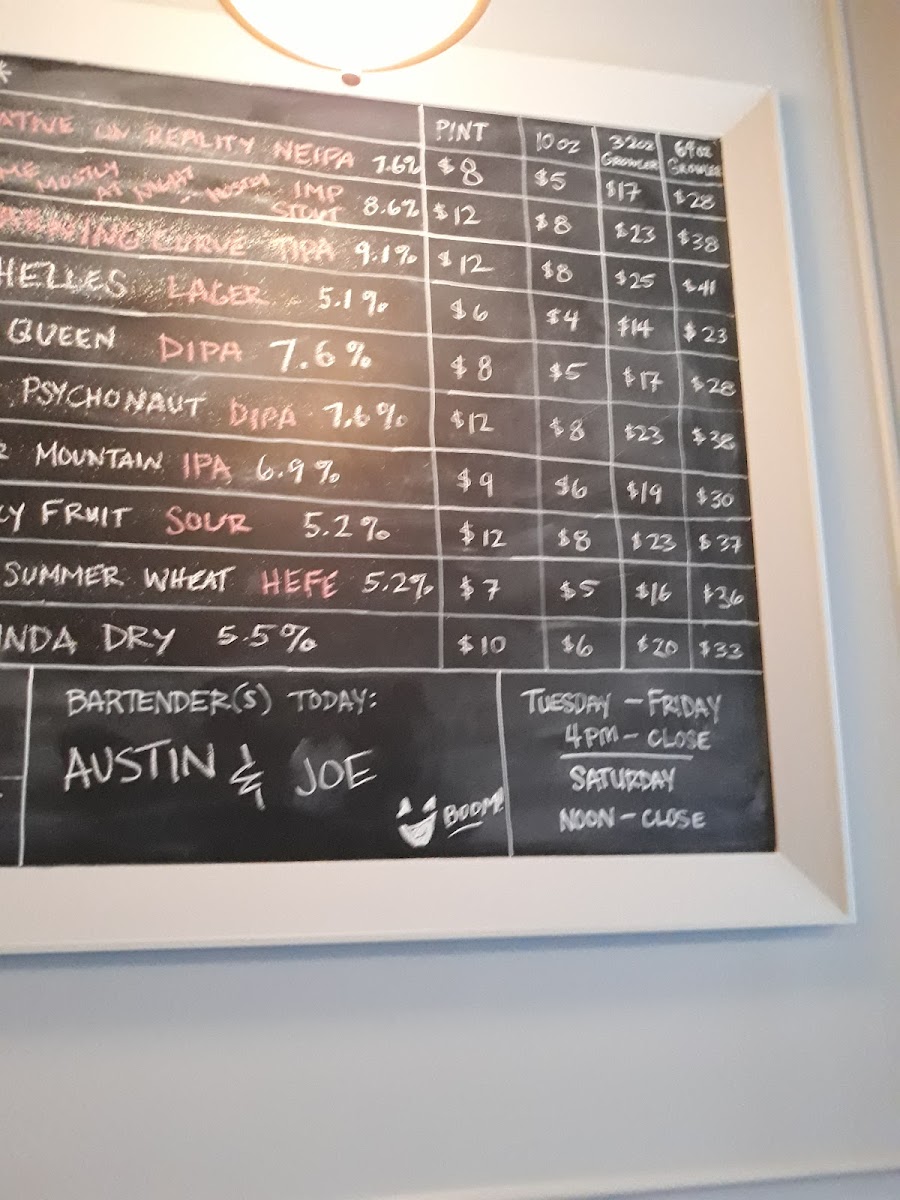 PINT 10 OZ 32 OZ GROWLER 64 OZ GROWLER
REALITY NEIPA 7.6% $8 $5 $17 $28
MOSTLY AT NIGHT, MOSTLY IMP STOUT 8.6% $12 $8 $23 $38
CURVE TIPA 9.1% $12 $8 $25 $41
HELLES LAGER - 5.1% $6 $4 $14 $23
QUEEN DIPA 7.6% $8 $5 $17 $28
PSYCHONAUT DIPA 7.6% $12 $8 $23 $38
MOUNTAIN IPA 6.9% $9 $6 $19 $30
FRUIT SOUR 5.2% $12 $8 $23 $37
SUMMER WHEAT HEFE 5.2% $7 $5 $16 $36
DRY 5.5% $10 $6 $20 $33
BARTENDER(S) TODAY:
AUSTIN & JOE
BOOM!
TUESDAY - FRIDAY
4PM - CLOSE
SATURDAY
NOON - CLOSE